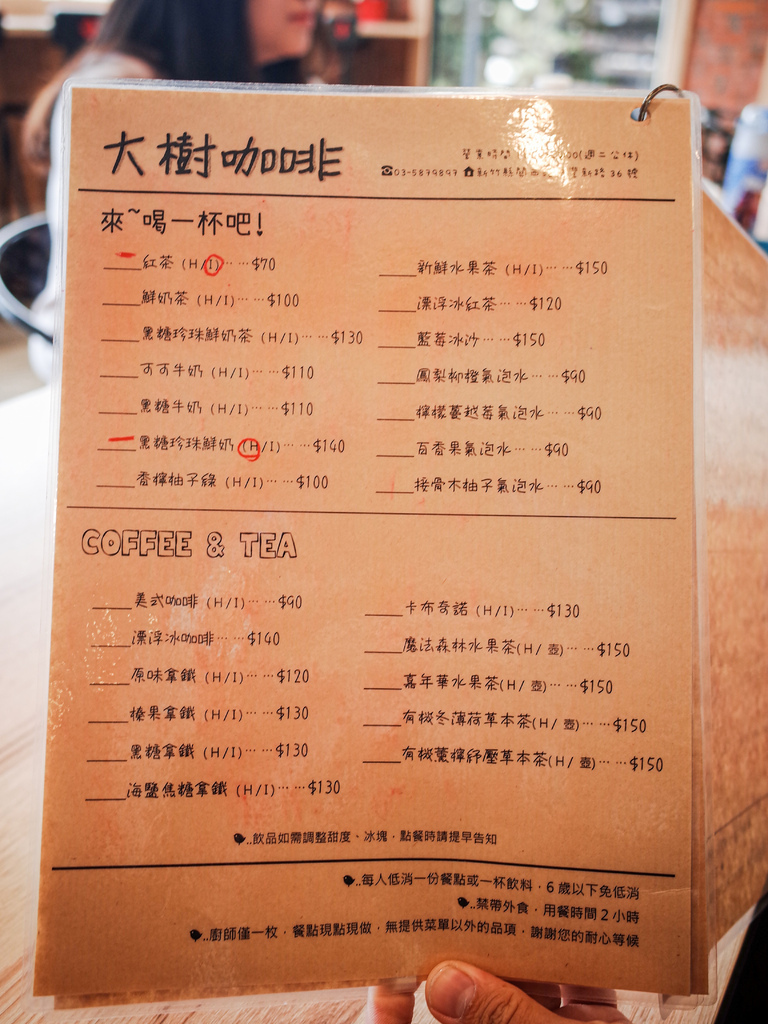 大樹咖啡
營業時間 00(週二公休)
03-5879897 新竹縣關西 新橋 36 號
來~喝一杯吧!
紅茶 (H/I)⋯ ⋯$70
鮮奶茶 (H/I)⋯ ⋯$100
黑糖珍珠鮮奶茶 (H/I)⋯ ⋯$130
可可牛奶 (H/I)⋯ ⋯$110
黑糖牛奶 (H/I)⋯ ⋯$110
黑糖珍珠鮮奶 (H/I)⋯ ⋯$140
香檸柚子綠 (H/I)⋯ ⋯$100
新鮮水果茶 (H/I)⋯ ⋯$150
漂浮冰紅茶⋯ ⋯$120
藍莓冰沙⋯ ⋯$150
鳳梨柳橙氣泡水⋯ ⋯$90
檸檬蔓越莓氣泡水⋯ ⋯$90
百香果氣泡水⋯ ⋯$90
接骨木柚子氣泡水⋯ ⋯$90
COFFEE & TEA
美式咖啡 (H/I)⋯ ⋯$90
漂浮冰咖啡⋯ ⋯$140
原味拿鐵 (H/I)⋯ ⋯$120
榛果拿鐵 (H/I)⋯ ⋯$130
黑糖拿鐵 (H/I)⋯ ⋯$130
海鹽焦糖拿鐵 (H/I)⋯ ⋯$130
卡布奇諾 (H/I)⋯ ⋯$130
魔法森林水果茶(H/ 壺)⋯ ⋯$150
嘉年華水果茶(H/ 壺)⋯ ⋯$150
有機冬薄荷草本茶(H/ 壺)⋯ ⋯$150
有機薰檸紓壓草本茶(H/ 壺)⋯ ⋯$150
..飲品如需調整甜度、冰塊，點餐時請提早告知
..每人低消一份餐點或一杯飲料，6 歲以下免低消
..禁帶外食，用餐時間 2 小時
..廚師僅一枚，餐點現點現做，無提供菜單以外的品項，謝謝您的耐心等候